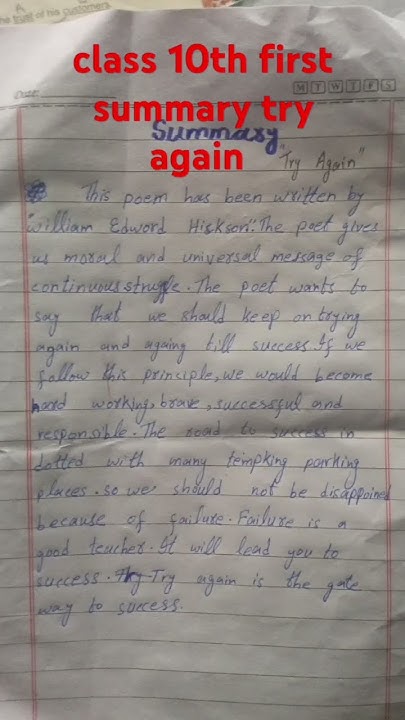 the trust of his customers.
class 10th first
summary try
again
Date:
M T W T F S
Summary
"Try Again"
This poem has been written by
"William Edward Hickson". The poet gives
us moral and universal message of
continuous struggle. The poet wants to
say that we should keep on trying
again and againg till success. If we
follow this principle, we would become
hard working, brave, successful and
responsible. The road to success in
dotted with many tempking parking
places. so we should not be disappoined
because of failure. Failure is a
good teacher. It will lead you to
success. Try again is the gate
way to success.